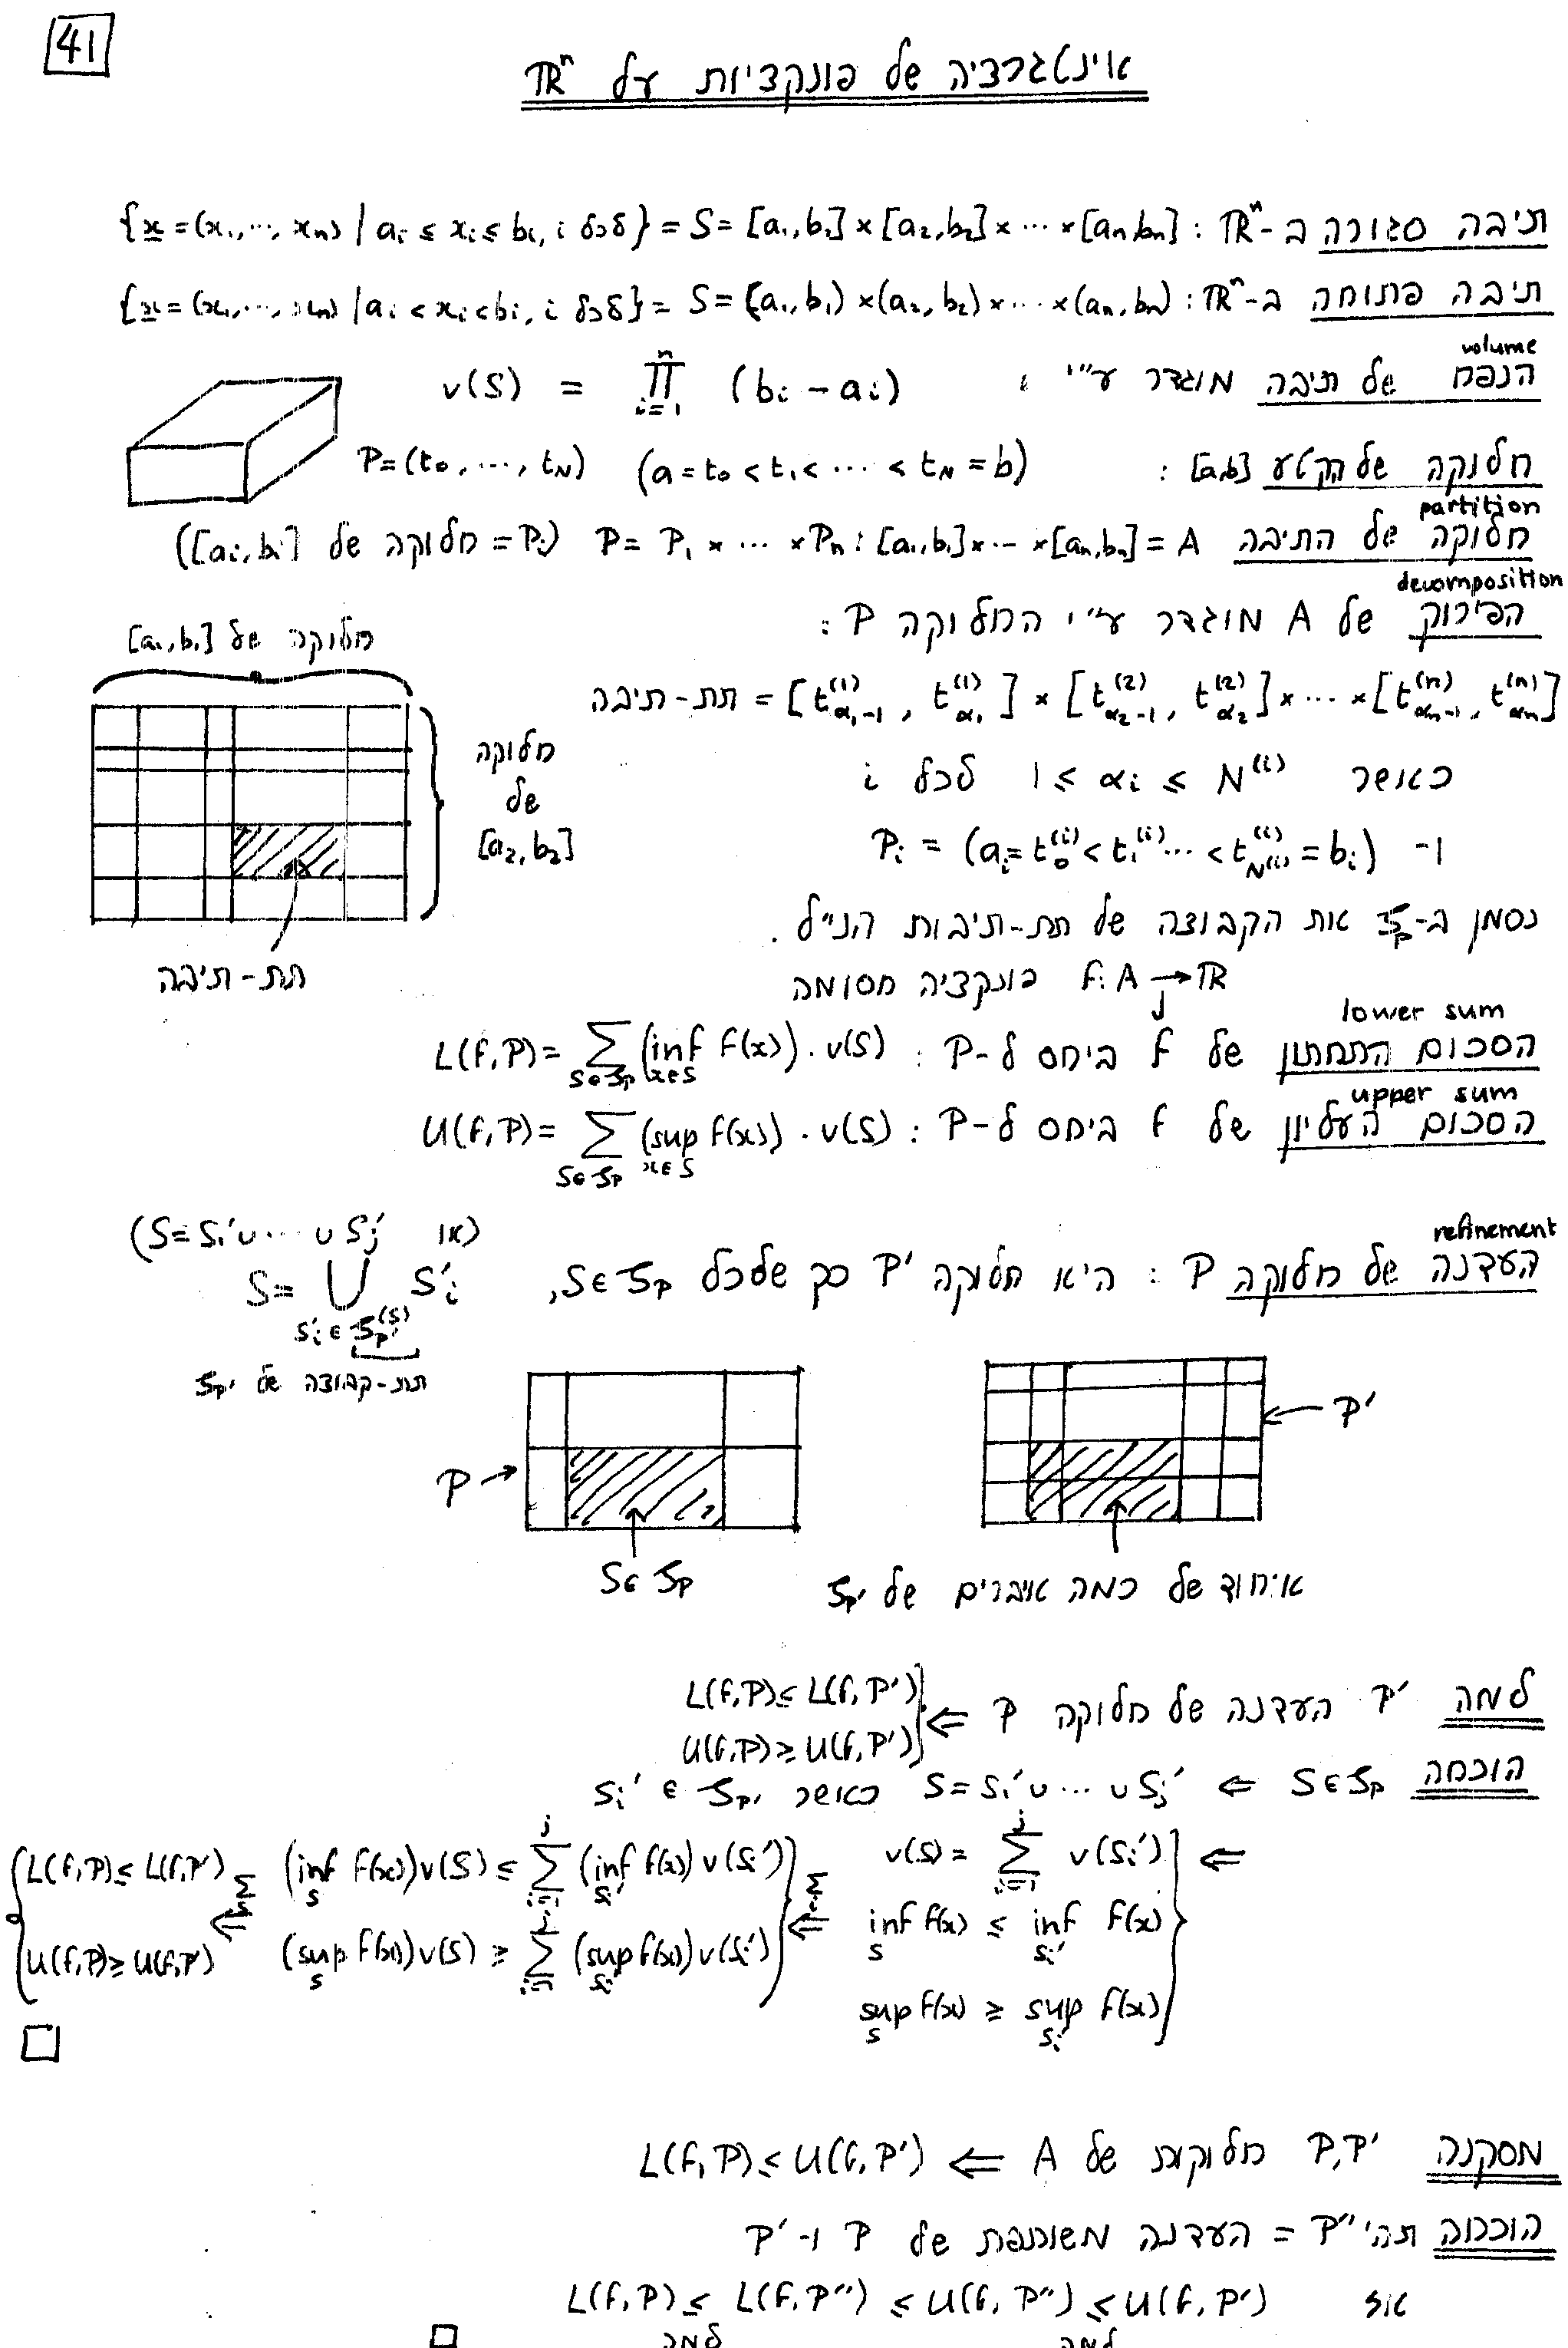 41
אינטגרציה של פונקציות על ℝⁿ
תיבה סגורה ב-ℝⁿ : {x = (x₁,⋯, xₙ) | aᵢ ≤ xᵢ ≤ bᵢ, i לכל} = S = [a₁,b₁] × [a₂,b₂] × ⋯ × [aₙ,bₙ]
תיבה פתוחה ב-ℝⁿ : {x = (x₁,⋯, xₙ) | aᵢ < xᵢ < bᵢ, i לכל} = S = (a₁,b₁) × (a₂,b₂) × ⋯ × (aₙ,bₙ)
volume
הנפח של תיבה מוגדר ע"י : v(S) = ∏ᵢ₌₁ⁿ (bᵢ - aᵢ)
חלוקה של הקטע [a,b] : P = (t₀, ⋯, t_N) (a = t₀ < t₁ < ⋯ < t_N = b)
partition
חלוקה של התיבה A = [a₁,b₁] × ⋯ × [aₙ,bₙ] : P = P₁ × ⋯ × Pₙ (Pᵢ = חלוקה של [aᵢ,bᵢ])
decomposition
הפירוק של A מוגדר ע"י החלוקה P :
חלוקה של [a₁,b₁]
תת-תיבה = [t_{α₁-1}^{(1)}, t_{α₁}^{(1)}] × [t_{α₂-1}^{(2)}, t_{α₂}^{(2)}] × ⋯ × [t_{αₙ-1}^{(n)}, t_{αₙ}^{(n)}]
חלוקה
של
[a₂,b₂]
כאשר 1 ≤ αᵢ ≤ N^{(i)} לכל i
ו- Pᵢ = (aᵢ = t₀^{(i)} < t₁^{(i)} ⋯ < t_{N^{(i)}}^{(i)} = bᵢ)
נסמן ב-𝒮_P את הקבוצה של תת-תיבות הנ"ל.
תת-תיבה
f: A → ℝ פונקציה חסומה
lower sum
הסכום התחתון של f ביחס ל-P : L(f,P) = ∑_{S∈𝒮_P} (inf_{x∈S} f(x)) · v(S)
upper sum
הסכום העליון של f ביחס ל-P : U(f,P) = ∑_{S∈𝒮_P} (sup_{x∈S} f(x)) · v(S)
refinement
העדנה של חלוקה P : היא חלוקה P' כך שלכל S∈𝒮_P, S = ⋃_{S'ᵢ ∈ 𝒮_{P'}^{(S)}} S'ᵢ
(או S = S₁' ∪ ⋯ ∪ Sⱼ')
תת-קבוצה של 𝒮_{P'}
P
P'
S∈𝒮_P
איחוד של כמה איברים של 𝒮_{P'}
למה P' העדנה של חלוקה P ⇐ L(f,P) ≤ L(f,P')
U(f,P) ≥ U(f,P')
הוכחה S∈𝒮_P ⇐ S = S₁' ∪ ⋯ ∪ Sⱼ' כאשר Sᵢ' ∈ 𝒮_{P'}
⇐ v(S) = ∑ᵢ₌₁ʲ v(Sᵢ')
inf_S f(x) ≤ inf_{Sᵢ'} f(x)
sup_S f(x) ≥ sup_{Sᵢ'} f(x)
⇐ (inf_S f(x)) v(S) ≤ ∑ᵢ₌₁ʲ (inf_{Sᵢ'} f(x)) v(Sᵢ')
(sup_S f(x)) v(S) ≥ ∑ᵢ₌₁ʲ (sup_{Sᵢ'} f(x)) v(Sᵢ')
⇐ L(f,P) ≤ L(f,P')
U(f,P) ≥ U(f,P')
□
מסקנה P,P' חלוקות של A ⇐ L(f,P) ≤ U(f,P')
הוכחה תהי P'' = העדנה משותפת של P ו-P'
אז L(f,P) ≤ L(f,P'') ≤ U(f,P'') ≤ U(f,P')
למה למה □